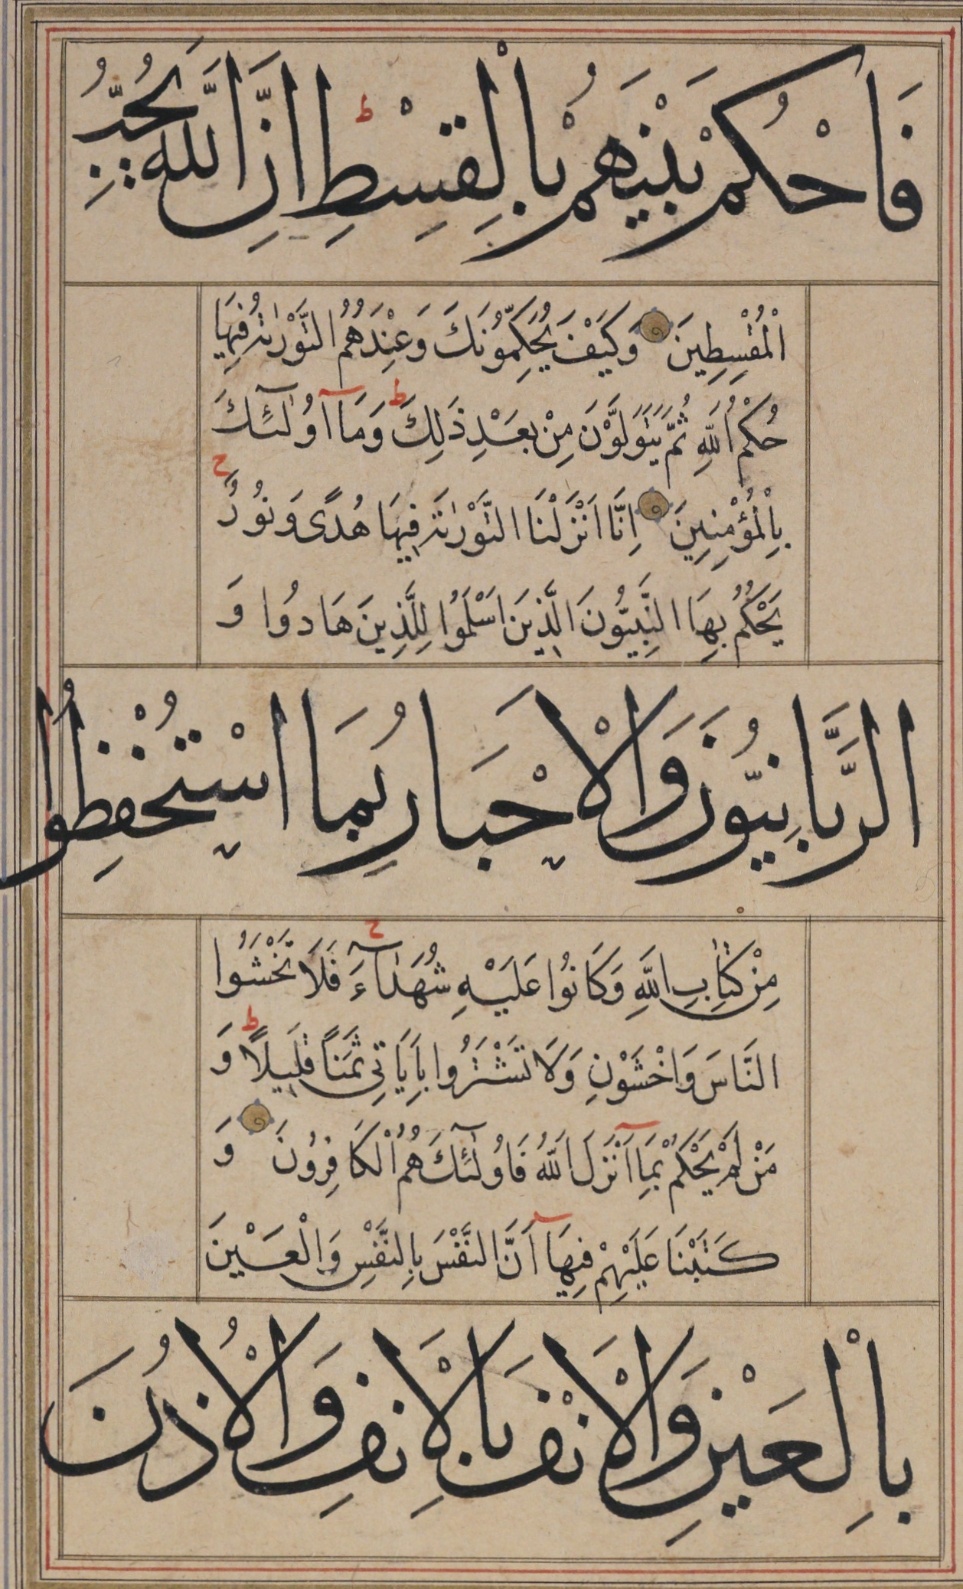 فَاحْكُمْ بَيْنَهُمْ بِالْقِسْطِ ط اِنَّ اللَّهَ يُحِبُّ
الْمُقْسِطِينَ وَكَيْفَ يُحَكِّمُونَكَ وَعِنْدَهُمُ التَّوْرٰيةُ فِيهَا
حُكْمُ اللَّهِ ثُمَّ يَتَوَلَّوْنَ مِنْ بَعْدِ ذَلِكَ ط وَمَآ اُولٰٓئِكَ
بِالْمُؤْمِنِينَ اِنَّا اَنْزَلْنَا التَّوْرٰيةَ فِيهَا هُدًى وَنُورٌ ح
يَحْكُمُ بِهَا النَّبِيُّونَ الَّذِينَ اَسْلَمُوا لِلَّذِينَ هَادُوا وَ
الرَّبَّانِيُّونَ وَالْاَحْبَارُ بِمَا اسْتُحْفِظُوا
مِنْ كِتَابِ اللَّهِ وَكَانُوا عَلَيْهِ شُهَدَآءَ ح فَلَا تَخْشَوُا
النَّاسَ وَاخْشَوْنِ وَلَا تَشْتَرُوا بِاَيَاتِى ثَمَنًا قَلِيلًا ط وَ
مَنْ لَمْ يَحْكُمْ بِمَآ اَنْزَلَ اللَّهُ فَاُولٰٓئِكَ هُمُ الْكَافِرُونَ وَ
كَتَبْنَا عَلَيْهِمْ فِيهَآ اَنَّ النَّفْسَ بِالنَّفْسِ وَالْعَيْنَ
بِالْعَيْنِ وَالْاَنْفَ بِالْاَنْفِ وَالْاُذُنَ